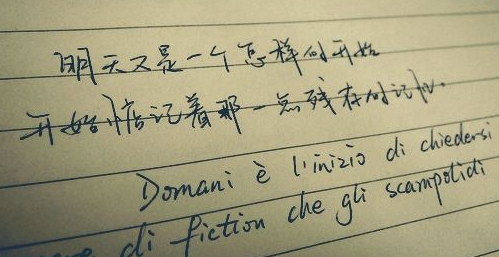 明天又是一个怎样的开始
开始惦记着那一点残存的记忆.
Domani è l'inizio di chiedersi
di fiction che gli scampolidi